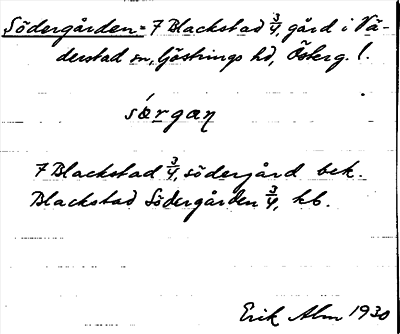 Södergården = 7 Blackstad 3/4, gård i Vä-
derstad sn, Göstrings hd, Österg. l.
sǿrgaɳ
7 Blackstad 3/4, södergård bek.
Blackstad Södergården 3/4, kb.
Erik Alm 1930